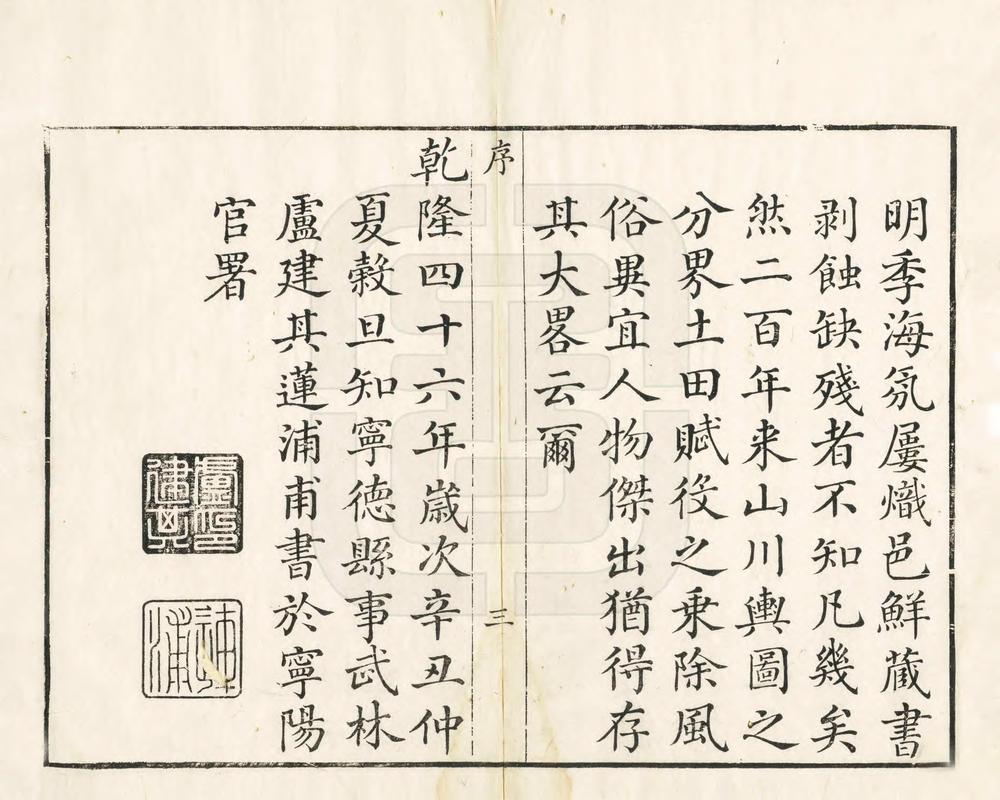 明季海氛屢熾邑鮮蔵書
剥蝕缺殘者不知凡幾矣
然二百年来山川輿圖之
分界土田賦役之乗除風
俗異宜人物傑出猶得存
其大畧云爾
序
三
乾隆四十六年嵗次辛丑仲
夏榖旦知寧德縣事武林
盧建其蓮浦甫書於寧陽
官署
盧建其印
蓮浦